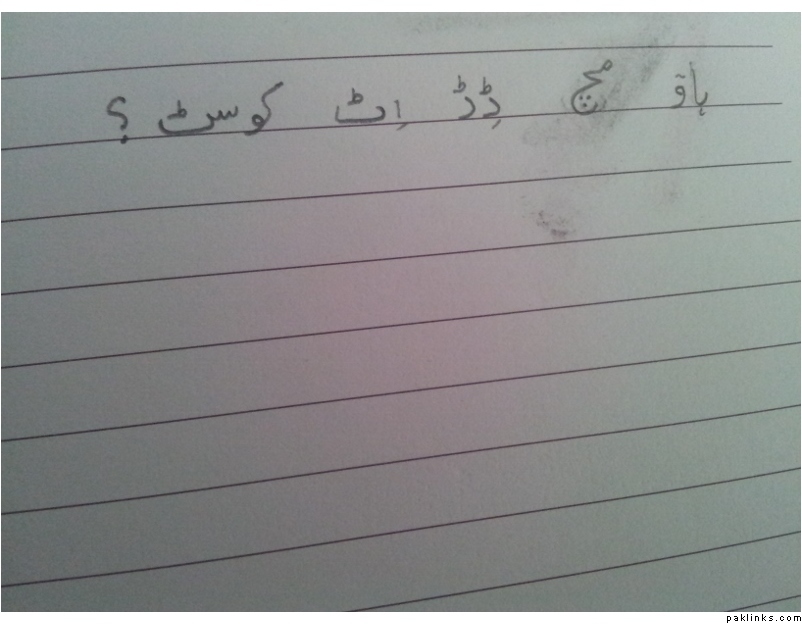 ہاؤ مچ ڈِڈ اِٹ کوسٹ ؟
paklinks.com